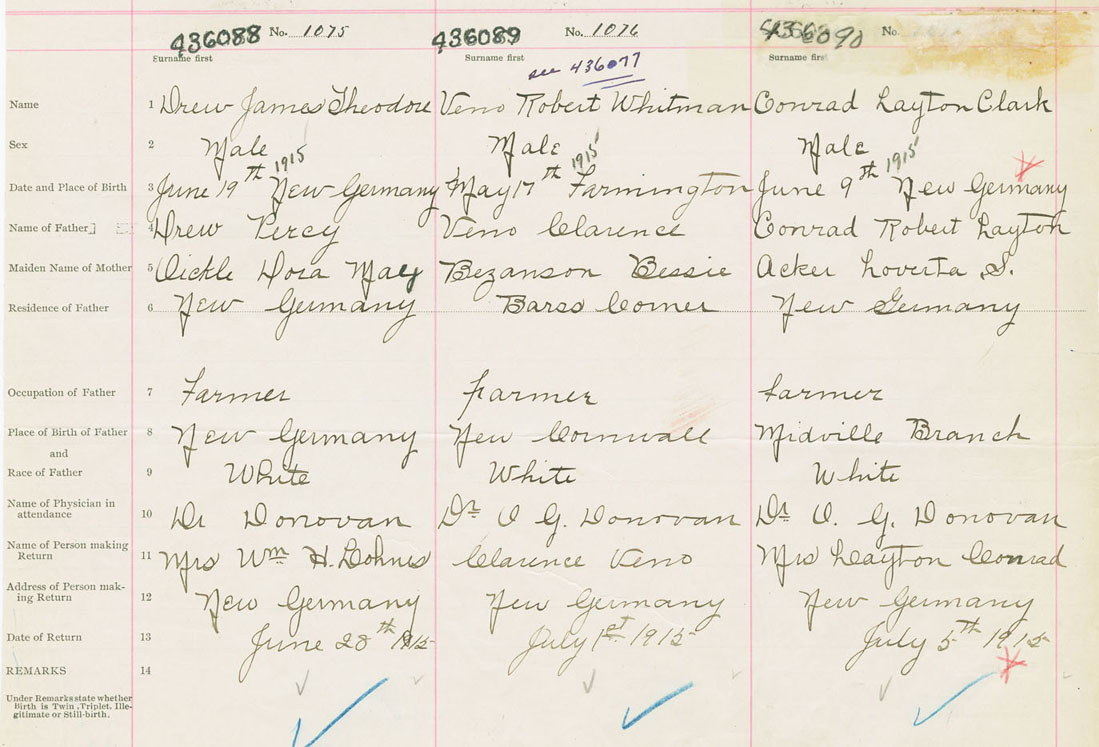 436088 No. 1075 436089 No. 1076 No.
Surname first Surname first Surname first
see 436077
Name 1 Drew James Theodore Veno Robert Whitman Conrad Layton Clark
Sex 2 Male Male Male
1915 1915 1915
Date and Place of Birth 3 June 19th New Germany May 17th Farmington June 9th New Germany
Name of Father 4 Drew Percy Veno Clarence Conrad Robert Layton
Maiden Name of Mother 5 Dora May Bezanson Bessie Acker Loverta S.
Residence of Father 6 New Germany Barss Corner New Germany
Occupation of Father 7 Farmer Farmer Farmer
Place of Birth of Father 8 New Germany New Cornwall Midville Branch
and
Race of Father 9 White White White
Name of Physician in
attendance 10 Dr Donovan Dr O G. Donovan Dr. O. G. Donovan
Name of Person making
Return 11 Mrs Wm H. Clarence Veno Mrs Layton Conrad
Address of Person mak-
ing Return 12 New Germany New Germany New Germany
Date of Return 13 June 28th 1915 July 1st 1915 July 5th 1915
REMARKS 14
Under Remarks state whether
Birth is Twin, Triplet, Ille-
gitimate or Still-birth.